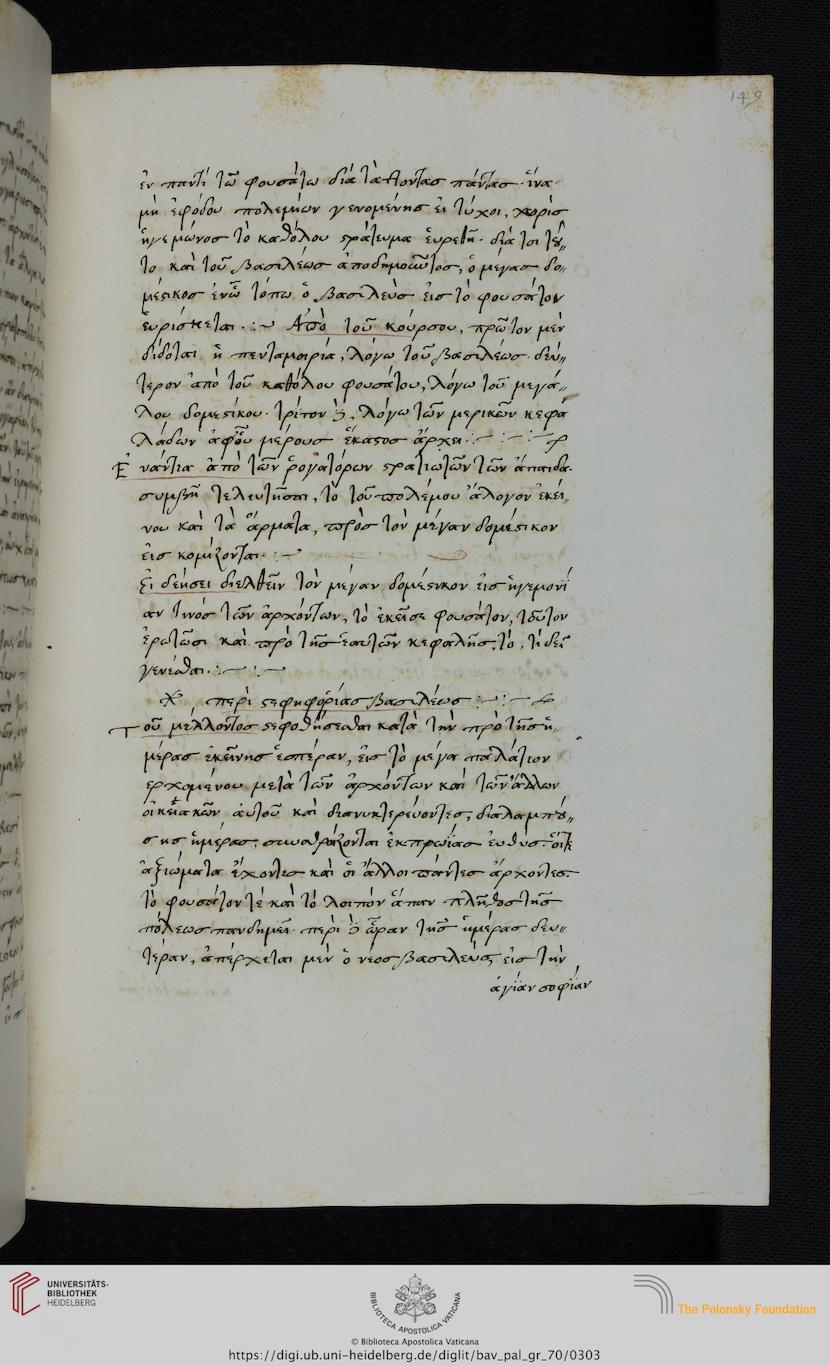 149
ἐν παντὶ τῶ φουσάτω διὰ τὰ λοντας πάντας· ἵνα
μὴ ἐφόδου πολεμίων γενομένης εἰ τύχοι, χωρὶς
ἡγεμόνος τὸ καθόλου στράτευμα εὑρεθῆ· διά τοι τοῦ
το καὶ τοῦ βασιλέως ἀποδημοῦντος, ὁ μέγας δο„
μέστικος ἐν ὧ τόπω ὁ βασιλεὺς εἰς τὸ φουσάτον
εὑρίσκεται. :~ Ἀπὸ τοῦ κούρσου, πρῶτον μὲν
δίδοται ἡ πενταμοιρία, λόγω τοῦ βασιλέως· δεύ„
τερον ἀπὸ τοῦ καθόλου φουσάτου, λόγω τοῦ μεγά„
λου δομεστίκου· τρίτον, λόγω τῶν μερικῶν κεφα
λάδων ἀφ' οὗ μέρους ἕκαστος ἄρχει :~ :~
Ἐναντία ἀπὸ τῶν ῥογατόρων στρατιωτῶν τῶν ἄπαιδα
συμβῆ τελευτῆσαι, τὸ τοῦ πολέμου ἄλογον ἐκεί„
νου καὶ τὰ ἅρματα, πρὸς τὸν μέγαν δομέστικον
εἰς κομίζονται. :~
Εἰ δεήσει διελθεῖν τὸν μέγαν δομέστικον εἰς ἡγεμονί
αν τινὸς τῶν ἀρχόντων, τὸ ἐκεῖσε φουσάτον, τοῦτον
ἐρωτῶσι καὶ πρὸ τῆς ἑαυτῶν κεφαλῆς, τὸ, τί δεῖ
γενέσθαι. :~ :~
περὶ στεφηφορίας βασιλέως :~ :~
Τοῦ μέλλοντος στεφθήσεσθαι κατὰ τὴν πρὸ τῆς ἡ„
μέρας ἐκείνης ἑσπέραν, εἰς τὸ μέγα παλάτιον
ερχομένου μετὰ τῶν ἀρχόντων καὶ τῶν ἄλλων
οἰκειακῶν αὐτοῦ καὶ διανυκτερεύοντες, διαλαμπού„
σης ἡμέρας, συναθροίζονται ἐκπρωΐας εὐθυς· οἵτε
ἀξιώματα ἔχοντες καὶ οἱ ἄλλοι πάντες ἄρχοντες·
τὸ φουσάτον τὲ καὶ τὸ λοιπὸν ἅπαν πλῆθος τῆς
πόλεως πανδημεί· περὶ ὥραν τῆς ἡμέρας δευ„
τέραν, ἀπέρχεται μὲν ὁ νέος βασιλεὺς εἰς τὴν
ἁγίαν σοφίαν
UNIVERSITÄTS-
BIBLIOTHEK
HEIDELBERG
BIBLIOTECA APOSTOLICA VATICANA
The Polonsky Foundation
© Biblioteca Apostolica Vaticana
https://digi.ub.uni-heidelberg.de/diglit/bav_pal_gr_70/0303